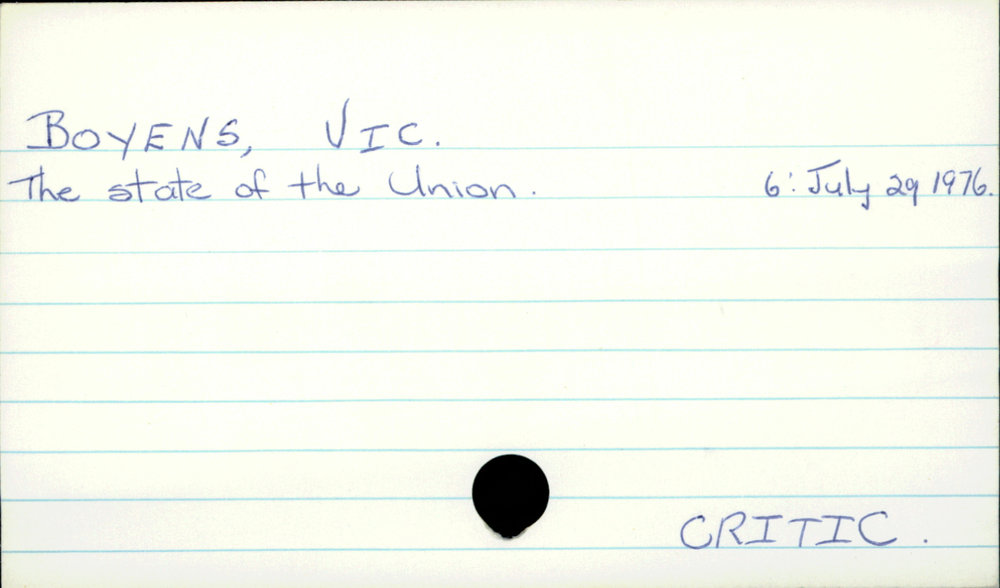 BOYENS, VIC.
The state of the Union. 6: July 29 1976.
CRITIC.